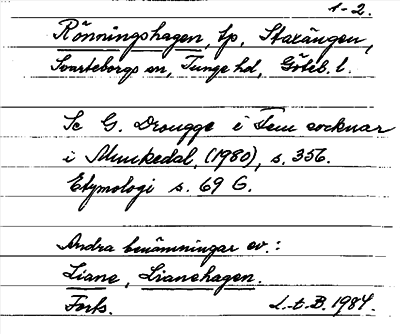 1-2.
Rönningshagen, tp, Staxängen,
Svarteborgs sn, Tunge hd, Göteb. l.
Se G. Drougge i Fem socknar
i Munkedal, (1980), s. 356.
Etymologi s. 69 G.
Andra benämningar ev.:
Liane, Lianehagen.
Forts. L.t.B. 1984.